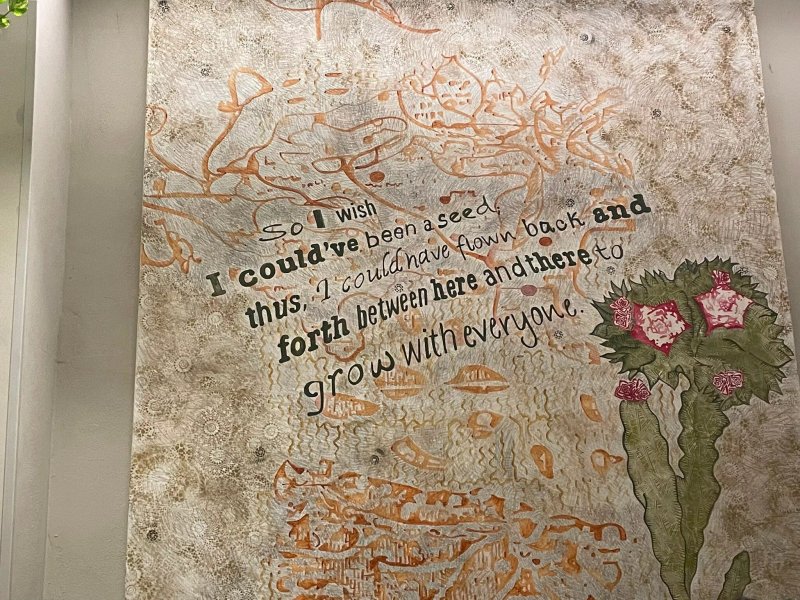 So I wish
I could've been a seed,
thus, I could have flown back and
forth between here and there to
grow with everyone.